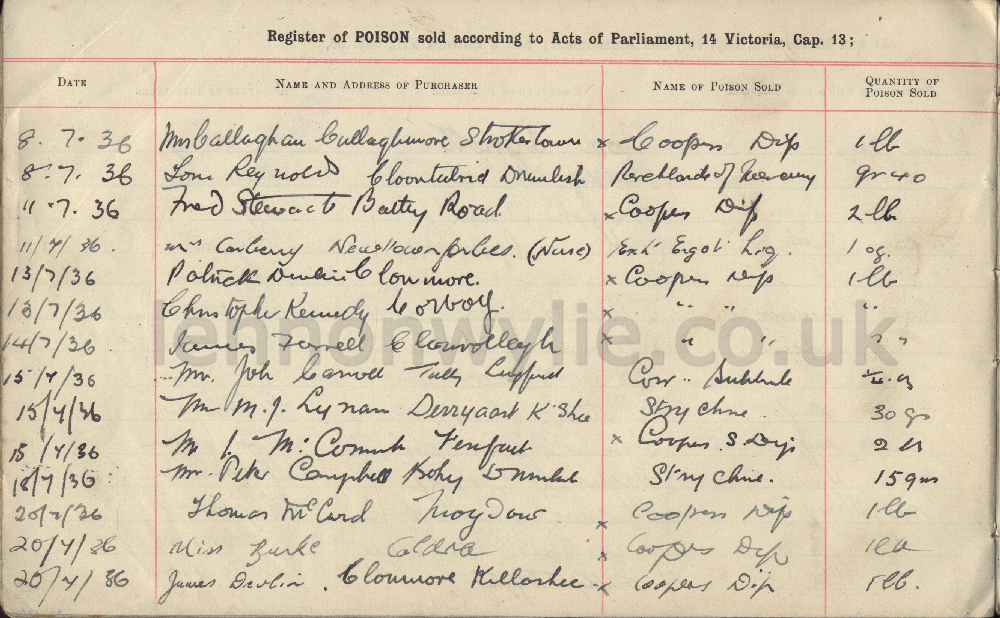 Register of POISON sold according to Acts of Parliament, 14 Victoria, Cap. 13;
DATE NAME AND ADDRESS OF PURCHASER NAME OF POISON SOLD QUANTITY OF POISON SOLD
8. 7. 36 Mrs Callaghan Cullaghmore Strokestown x Coopers Dip 1 lb
8. 7. 36 Tom Reynolds Cloontubrid Drumlish Perchloride of Mercury gr 40
11. 7. 36 Fred Stewart Battery Road x Coopers Dip 2 lb
11/7/36. Mrs Carberry Newtownforbes. (Nurse) Ext Ergot Liq. 1 oz.
13/7/36 Patrick Clonmore. x Coopers Dip 1 lb
13/7/36 Christopher Kennedy x " " "
14/7/36 James Farrell x " " " "
15/7/36 Mr. Carroll Longford Corr. Sublimate
15/7/36 Mr M. J. Lynam K'Shee Strychnine 30 grs
15/7/36 Mr J. McCormack x Coopers S. Dip 2 lb
18/7/36 Mr. Peter Campbell Drumlish Strychnine. 15 grs
20/7/36 Thomas McCord Moydow x Coopers Dip 1 lb
20/7/36 Miss Burke x Coopers Dip 1 lb
20/7/36 James Devlin. Clonmore Killashee x Coopers Dip 1 lb.
lennonwylie.co.uk